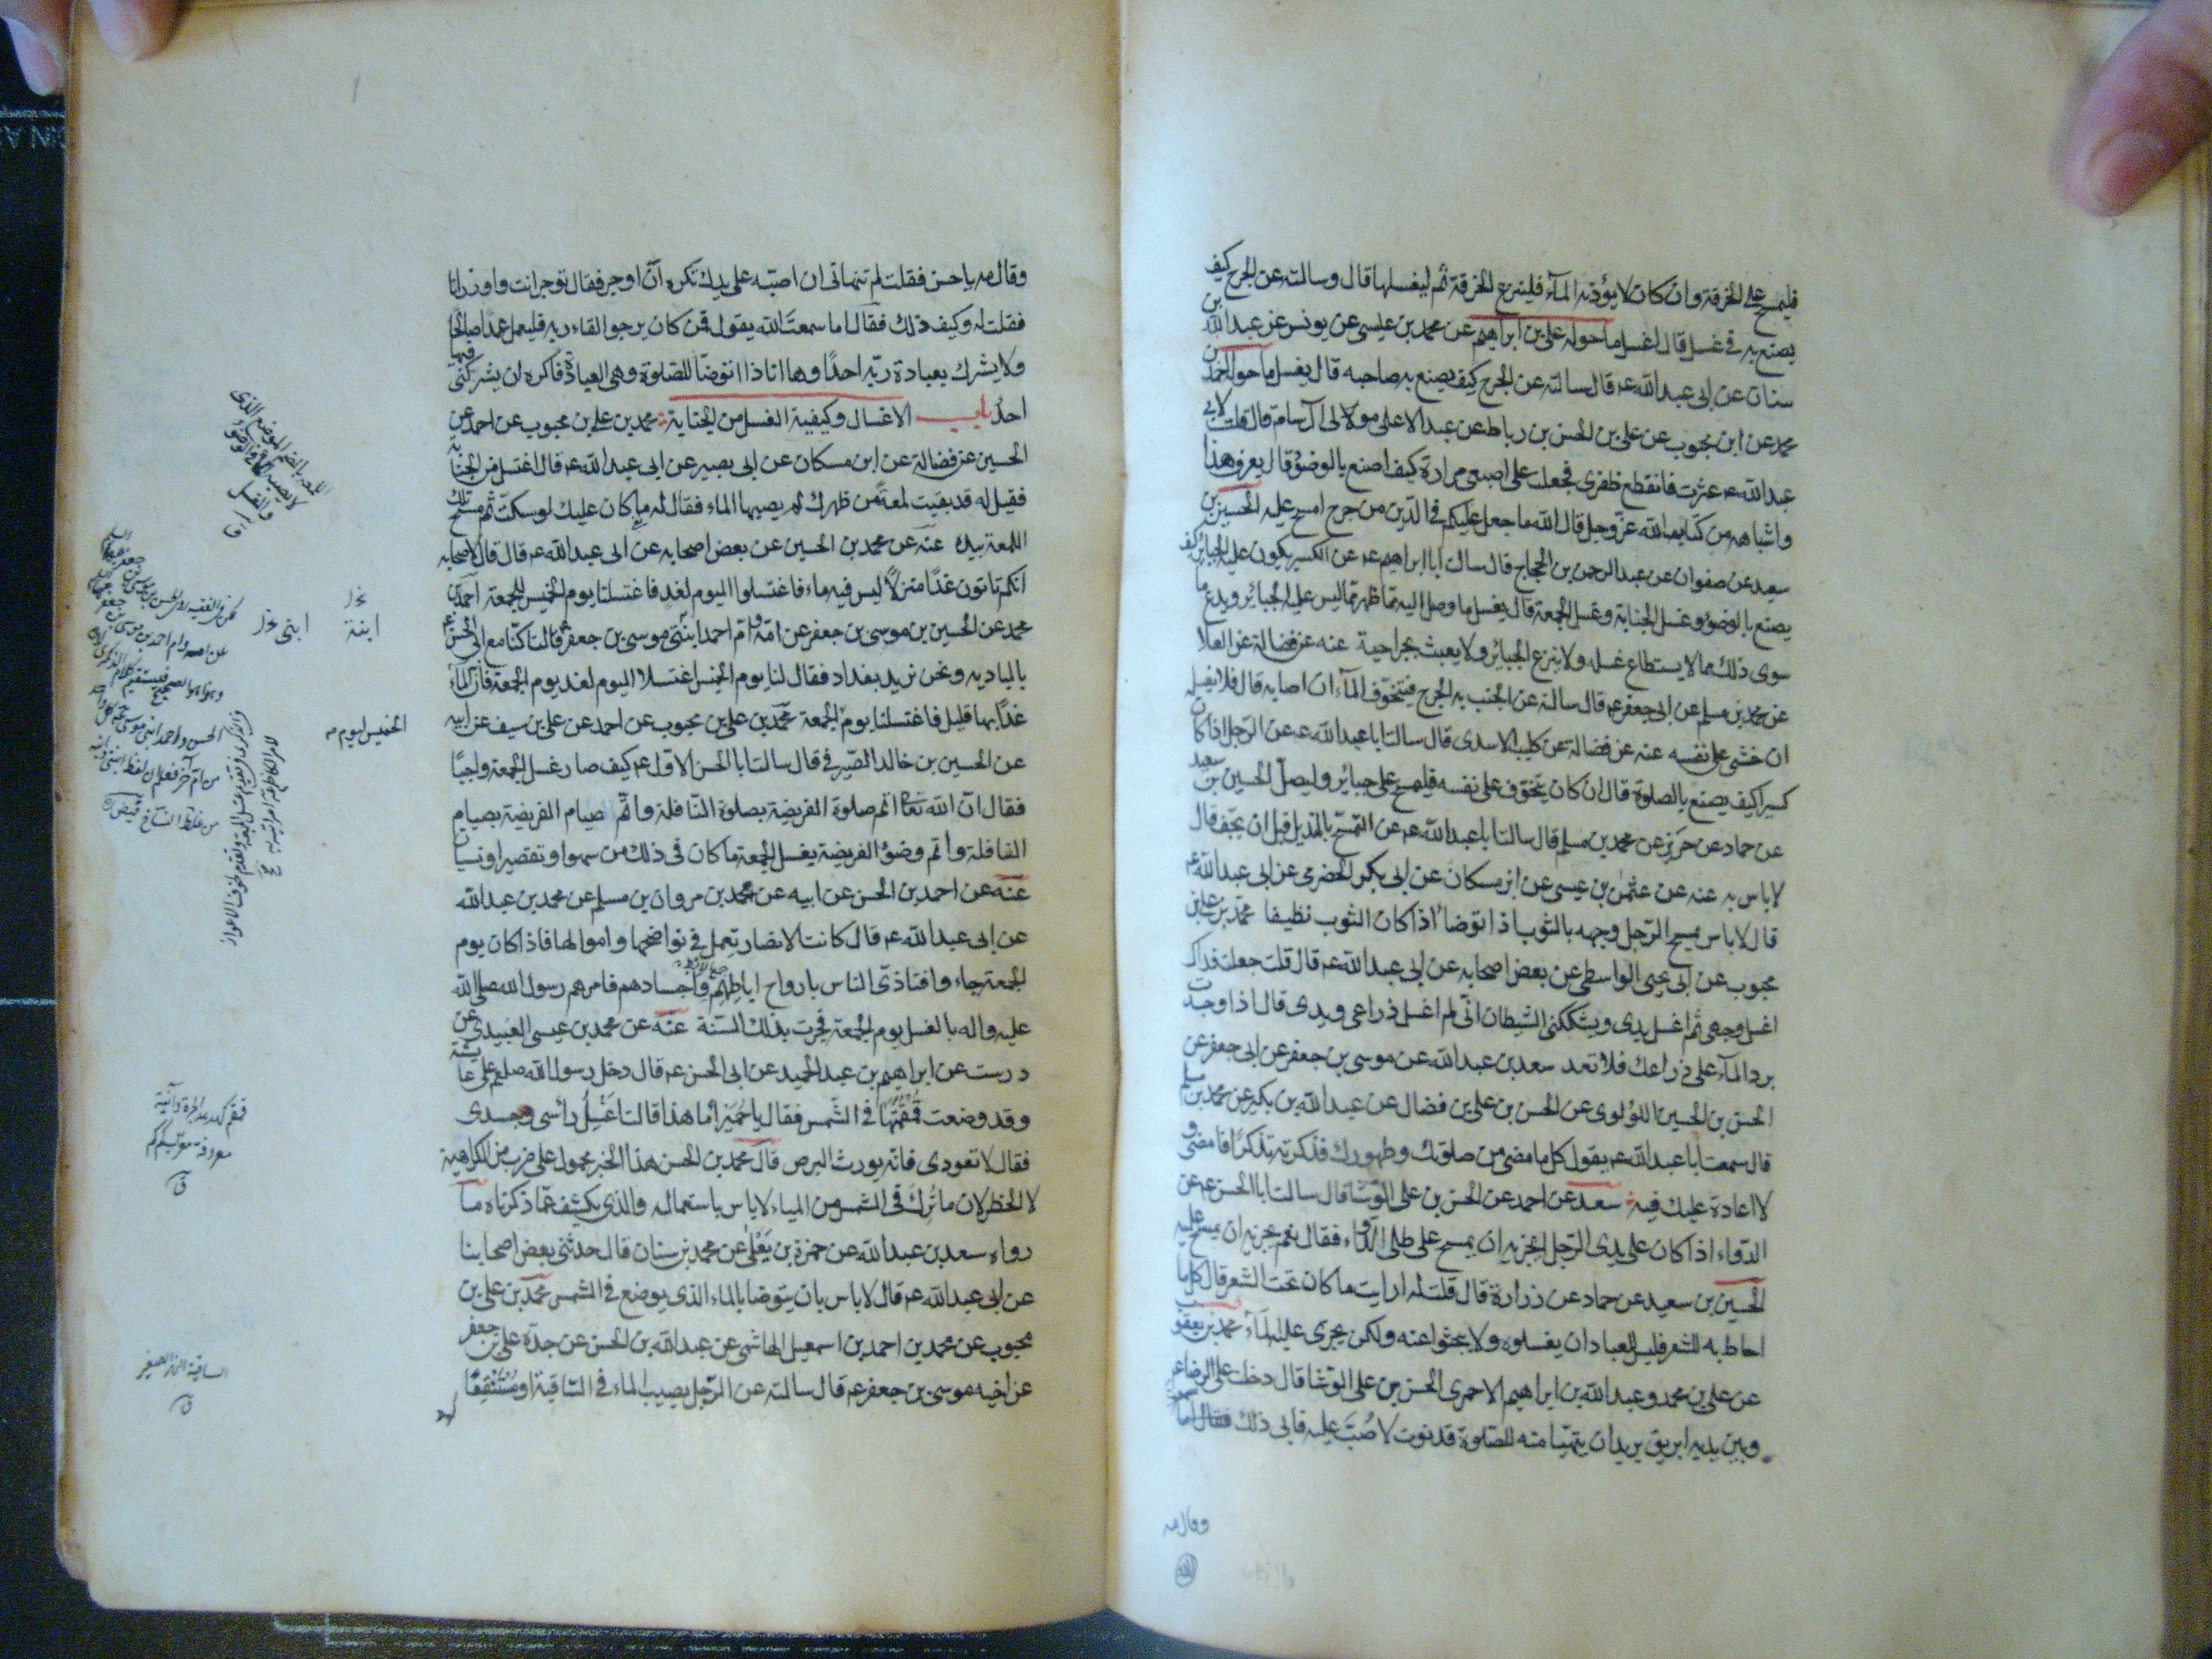 فليمسح على الخرقة وان كان لا يؤذيه الماء فلينزع الخرقة ثم ليغسلها قال وسالته عن الجرح كيف
يصنع به في غسله قال اغسل ما حوله علي بن ابراهيم عن محمد بن عيسى عن يونس عن عبد الله بن
سنان عن ابى عبد الله ع قال سالته عن الجرح كيف يصنع به صاحبه قال يغسل ما حوله احمد بن
محمد عن ابن محبوب عن علي بن الحسن بن رباط عن عبد الاعلى مولى ال سام قال قلت لابي
عبد الله ع عثرت فانقطع ظفري فجعلت على اصبعي مرارة كيف اصنع بالوضوء قال يعرف هذا
واشباهه من كتاب الله عز وجل قال الله ما جعل عليكم في الدين من حرج امسح عليه الحسين بن
سعيد عن صفوان عن عبد الرحمن بن الحجاج قال سالت ابا ابراهيم ع عن الكسير يكون عليه الجبائر كيف
يصنع بالوضوء وغسل الجنابة وغسل الجمعة قال يغسل ما وصل اليه مما ظهر مما ليس عليه الجبائر ويدع ما
سوى ذلك مما لا يستطاع غسله ولا ينزع الجبائر ولا يعبث بجراحته عنه عن فضالة عن العلا
عن محمد بن مسلم عن ابى جعفر ع قال سالته عن الجنب به الجرح فيتخوف الماء ان اصابه قال فلا يغسله
ان خشي على نفسه عنه عن فضالة عن كليب الاسدى قال سالت ابا عبد الله ع عن الرجل اذا كان
كسيرا كيف يصنع بالصلوة قال ان كان يتخوف على نفسه فليمسح على جبائره وليصل الحسين بن سعيد
عن حماد عن حريز عن محمد بن مسلم قال سالت ابا عبد الله ع عن التمسح بالمنديل قبل ان يجف قال
لا باس به عنه عن عثمن بن عيسى عن ابن مسكان عن ابى بكر الحضرمي عن ابى عبد الله ع
قال لا باس بمسح الرجل وجهه بالثوب اذا توضا اذا كان الثوب نظيفا محمد بن علي بن
محبوب عن ابى يحيى الواسطي عن بعض اصحابه عن ابى عبد الله ع قال قلت جعلت فداك
اغسل وجهى ثم اغسل يدى ويشككني الشيطان انى لم اغسل ذراعى ويدى قال اذا وجدت
برد الماء على ذراعك فلا تعد سعد بن عبد الله عن موسى بن جعفر عن ابى جعفر عن
الحسن بن الحسين اللؤلوى عن الحسن بن علي بن فضال عن عبد الله بن بكير عن محمد بن مسلم
قال سمعت ابا عبد الله ع يقول كل ما مضى من صلوتك وطهورك فذكرته تذكرا فامضه و
لا اعادة عليك فيه سعد عن احمد عن الحسن بن علي الوشا قال سالت ابا الحسن ع عن
الدواء اذا كان على يدى الرجل ايجزيه ان يمسح على طلى الدواء فقال نعم يجزيه ان يمسح عليه
الحسين بن سعيد عن حماد عن زرارة قال قلت له ارايت ما كان تحت الشعر قال كل ما
احاط به الشعر فليس للعباد ان يغسلوه ولا يبحثوا عنه ولكن يجرى عليه الماء محمد بن يعقوب
عن علي بن محمد وعبد الله بن ابراهيم الاحمرى الحسن بن علي الوشا قال دخلت على الرضا ع
وبين يديه ابريق يريد ان يتهيا منه للصلوة فدنوت لاصب عليه فابى ذلك
وقال مه
وقال مه يا حسن فقلت لم تنهانى ان اصبه على يدك تكره ان اوجر فقال توجر انت واوزر انا
فقلت له وكيف ذلك فقال اما سمعت الله يقول فمن كان يرجو القاء ربه فليعمل عملا صالحا
ولا يشرك بعبادة ربه احدا وها انا ذا اتوضا للصلوة وهى العبادة فاكره ان يشركنى فيها
احد باب الاغسال وكيفية الغسل من الجنابة محمد بن علي بن محبوب عن احمد عن
الحسين عن فضالة عن ابن مسكان عن ابى بصير عن ابى عبد الله ع قال اغتسل من الجنابة
فقيل له قد بقيت لمعة من ظهرك لم يصبها الماء فقال له ما كان عليك لو سكت ثم مسح تلك
اللمعة بيده عنه عن محمد بن الحسين عن بعض اصحابه عن ابى عبد الله ع قال قال لاصحابه
انكم تاتون غدا منزلا ليس فيه ماء فاغتسلوا اليوم لغد فاغتسلنا يوم الخميس للجمعة احمد بن
محمد عن الحسين بن موسى بن جعفر عن امه وام احمد ابنتى موسى بن جعفر قالتا كنا مع ابى الحسن ع
بالبادية ونحن نريد بغداد فقال لنا يوم الخميس اغتسلا اليوم لغد يوم الجمعة فان الماء
غدا بها قليل فاغتسلنا يوم الجمعة محمد بن علي بن محبوب عن احمد عن علي بن سيف عن ابيه
عن الحسين بن خالد الصيرفي قال سالت ابا الحسن الاول ع كيف صار غسل الجمعة واجبا
فقال ان الله تعا اتم صلوة الفريضة بصلوة النافلة واتم صيام الفريضة بصيام
النافلة واتم وضوء الفريضة بغسل الجمعة ما كان فى ذلك من سهو او تقصير او نسيان
عنه عن احمد بن الحسن عن ابيه عن محمد بن مروان بن مسلم عن محمد بن عبد الله
عن ابى عبد الله ع قال كانت الانصار تعمل في نواضحها واموالها فاذا كان يوم
الجمعة جاءوا فتاذى الناس بارواح اباطهم واجسادهم فامرهم رسول الله صلى الله
عليه واله بالغسل يوم الجمعة فجرت بذلك السنة عنه عن محمد بن عيسى العبيدى عن
درست عن ابراهيم بن عبد الحميد عن ابى الحسن ع قال دخل رسول الله صلعم على عايشة
وقد وضعت قمقمتها في الشمس فقال يا حميرا ما هذا قالت اغسل راسى وجسدى
فقال لا تعودى فانه يورث البرص قال محمد بن الحسن هذا الخبر محمول على ضرب من الكراهية
لا الحظر لان ما ترك فى الشمس من المياه لا باس باستعماله والذى يكشف عما ذكرناه ما
رواه سعد بن عبد الله عن حمزة بن يعلى عن محمد بن سنان قال حدثنى بعض اصحابنا
عن ابى عبد الله ع قال لا باس بان يتوضا بالماء الذى يوضع في الشمس محمد بن علي بن
محبوب عن محمد بن احمد بن اسمعيل الهاشمى عن عبد الله بن الحسن عن جده علي بن جعفر
عن اخيه موسى بن جعفر ع قال سالته عن الرجل يصيب الماء في الساقية او مستنقعا
ابنة
ابنى
الخميس ليوم
الساقية النهر الصغير